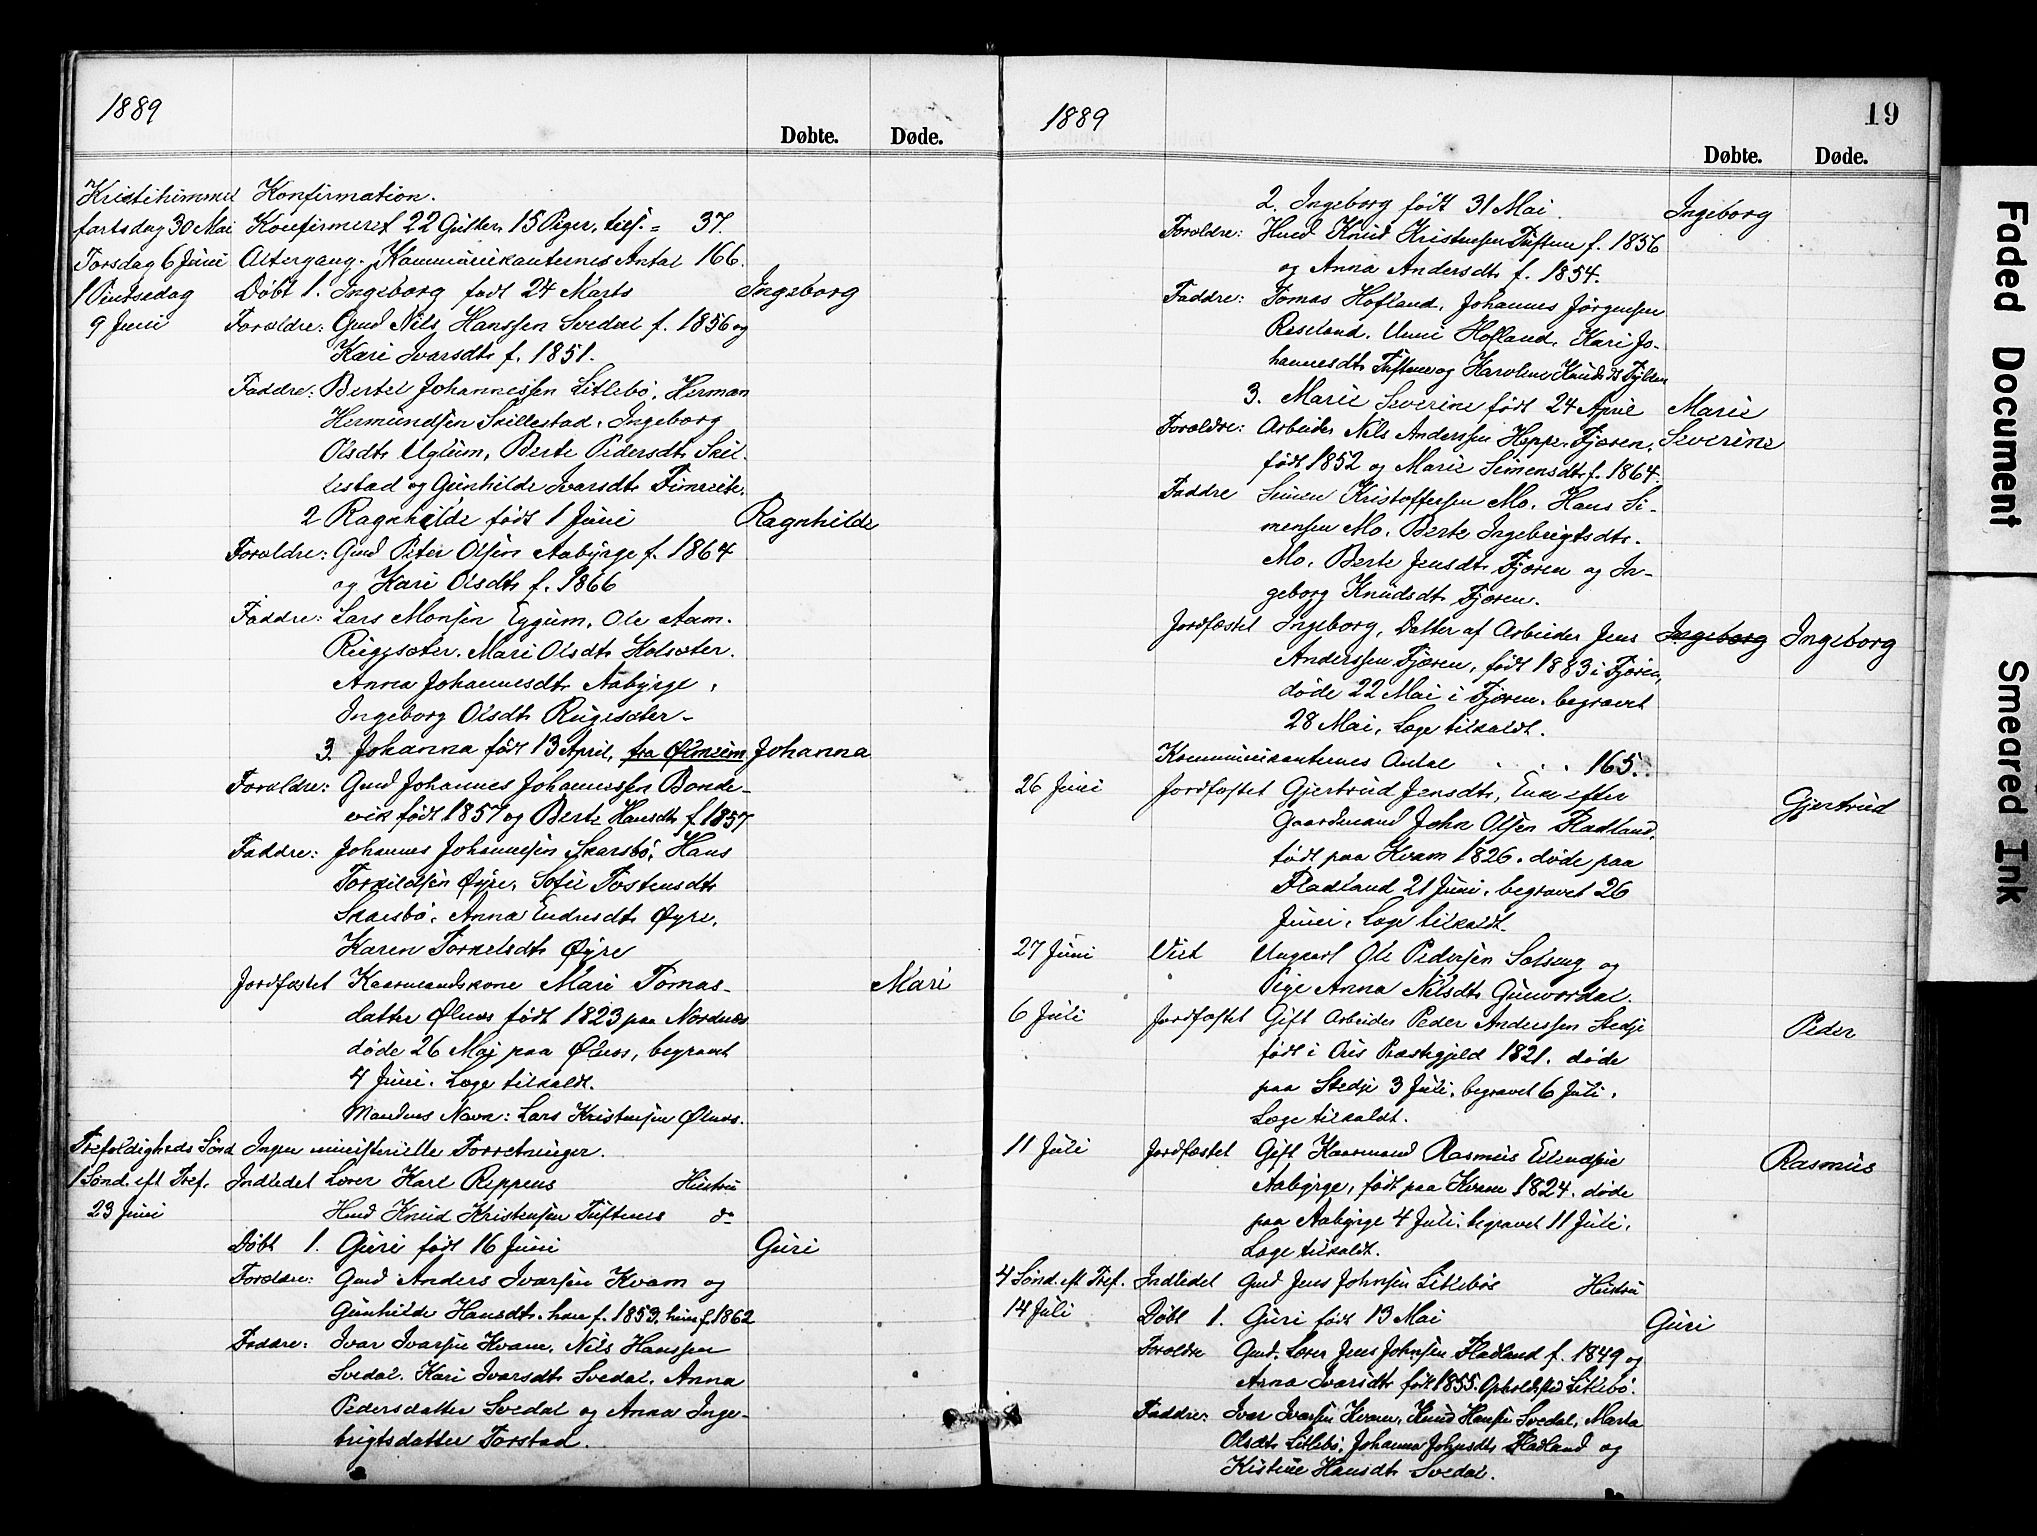 1889
Døbte. Døde.
Kristihimmel Konfirmation.
fartsdag 30 Mai Konfirmeret 22 Gutter, 15 Piger, tils. = 37.
Torsdag 6 Juni Altergang. Kommunikanternes Antal 166.
1 Pintsedag Døbt 1. Ingeborg født 24 Marts Ingeborg
9 Juni Forældre: Gmd Nils Hanssen Svedal f. 1856 og
Kari Ivarsdtr f. 1851.
Faddre: Bertel Johannessen Litlebø, Herman
Hermundsen Skillestad, Ingeborg
Olsdtr Uglum, Berte Pedersdtr Skil-
lestad og Gunhilde Ivarsdtr Fimreite.
2 Ragnhilde født 1 Juni Ragnhilde
Forældre: Gmd Peter Olsen Aabyrge f. 1864
og Kari Olsdtr f. 1866
Faddre: Lars Monsen Eggum, Ole Aam.
Rugesæter. Mari Olsdtr Kolsæter.
Anna Johannesdtr Aabyrge,
Ingeborg Olsdtr Rugesæter-
3. Johanna født 13 April, fra Ølmeim Johanna
Forældre: Gmd Johannes Johannessen Bonde-
vik født 1857 og Berte Hansdtr f. 1857
Faddre: Johannes Johannesen Skarsbø, Hans
Torkildsen Øyre, Sofie Tostensdtr
Skarsbø, Anna Endresdtr Øyre,
Karen Torkelsdtr Øyre
Jordfæstet Kaarmandskone Mari Tomas- Mari
datter Ølnes født 1823 paa Nordnæs
døde 26 Mai paa Ølnes, begravet
4 Juni. Læge tilkaldt.
Mandens Navn: Lars Kristensen Ølnes.
Trefoldigheds Sønd Ingen ministerielle Forretninger.
1 Sønd. eft Tref. Indledet Lærer Karl Reppens Hustru
23 Juni Hmd Knud Kristensen Tuftenes do
Døbt 1. Guri født 16 Juni Guri
Forældre: Gmd Anders Ivarsen Kvam og
Gunhilde Hansdtr. han f. 1853, hun f. 1862
Faddre: Ivar Ivarsen Kvam, Nils Hanssen
Svedal. Kari Ivarsdtr Svedal, Anna
Pedersdatter Svedal og Anna Inge-
brigtsdatter Torstad.
1889
19
Døbte. Døde.
2. Ingeborg født 31 Mai. Ingeborg
Forældre: Hmd Knud Kristensen Tuftene f. 1856
og Anna Andersdtr f. 1854.
Faddre: Tomas Hofland, Johannes Jørgensen
Røseland. Unni Hofland, Kari Jo-
hannesdtr Tuftene og Karoline Knudsdtr Fylden
3. Marie Severine født 24 April Marie
Forældre: Arbeider Nils Anderssen Heppe, Fjæren, Severine
født 1852 og Marie Simensdtr f. 1864.
Faddre Simen Kristoffersen Mo. Hans Si-
mensen Mo. Berte Ingebrigtsdtr.
Mo. Berte Jensdtr Fjæren og In-
geborg Knudsdtr Fjæren.
Jordfæstet Ingeborg, Datter af Arbeider Jens Ingeborg Ingeborg
Anderssen Fjæren, født 1883 i Fjæren,
døde 22 Mai i Fjæren. begravet
28 Mai, Læge tilkaldt.
Kommunikanternes Antal . . . . 165.
26 Juni Jordfæstet Gjertrud Jensdtr, Enke efter Gjertrud
Gaardmand John Olsen Fladland,
født paa Kvam 1826. døde paa
Fladland 21 Juni, begravet 26
Juni, Læge tilkaldt.
27 Juni Viet Ungkarl Ole Pedersen Solseng og
Pige Anna Nilsdtr Gunvordal.
6 Juli Jordfæstet Gift Arbeider Peder Anderssen Stedje Peder
født i Præstegjeld 1821. døde
paa Stedje 3 Juli, begravet 6 Juli.
Læge tilkaldt.
11 Juli Jordfæstet Gift Kaarmand Rasmus Erlendsen Rasmus
Aabyrge, født paa Kvam 1824. døde
paa Aabyrge 4 Juli. begravet 11 Juli.
Læge tilkaldt.
4 Sønd. eft Tref. Indledet Gmd Jens Johnsen Litlebøs Hustru
14 Juli Døbt 1. Guri født 13 Mai Guri
Forældre Gmd. Lærer Jens Johnsen Fladland f. 1849 og
Anna Ivarsdtr født 1855. Opholdssted Litlebø.
Faddre: Ivar Ivarsen Kvam, Knud Hansen Svedal, Marta
Olsdtr Litlebø, Johanna Johnsdtr Fladland og
Kistine Hansdtr Svedal.
Faded Document
Smeared Ink